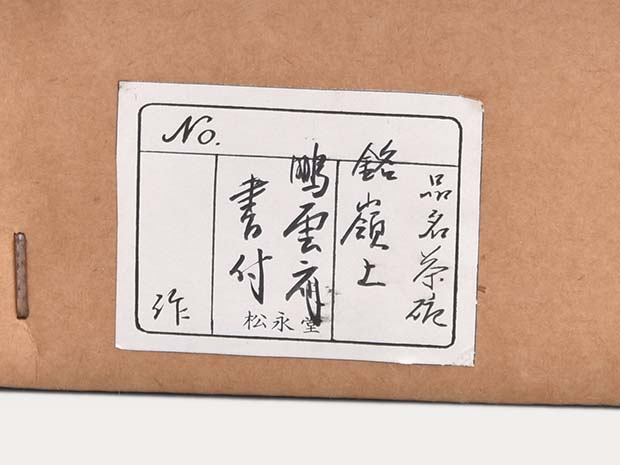 No.
品名 茶碗
銘 嶺上
鵬雲斎
書付
作
松永堂